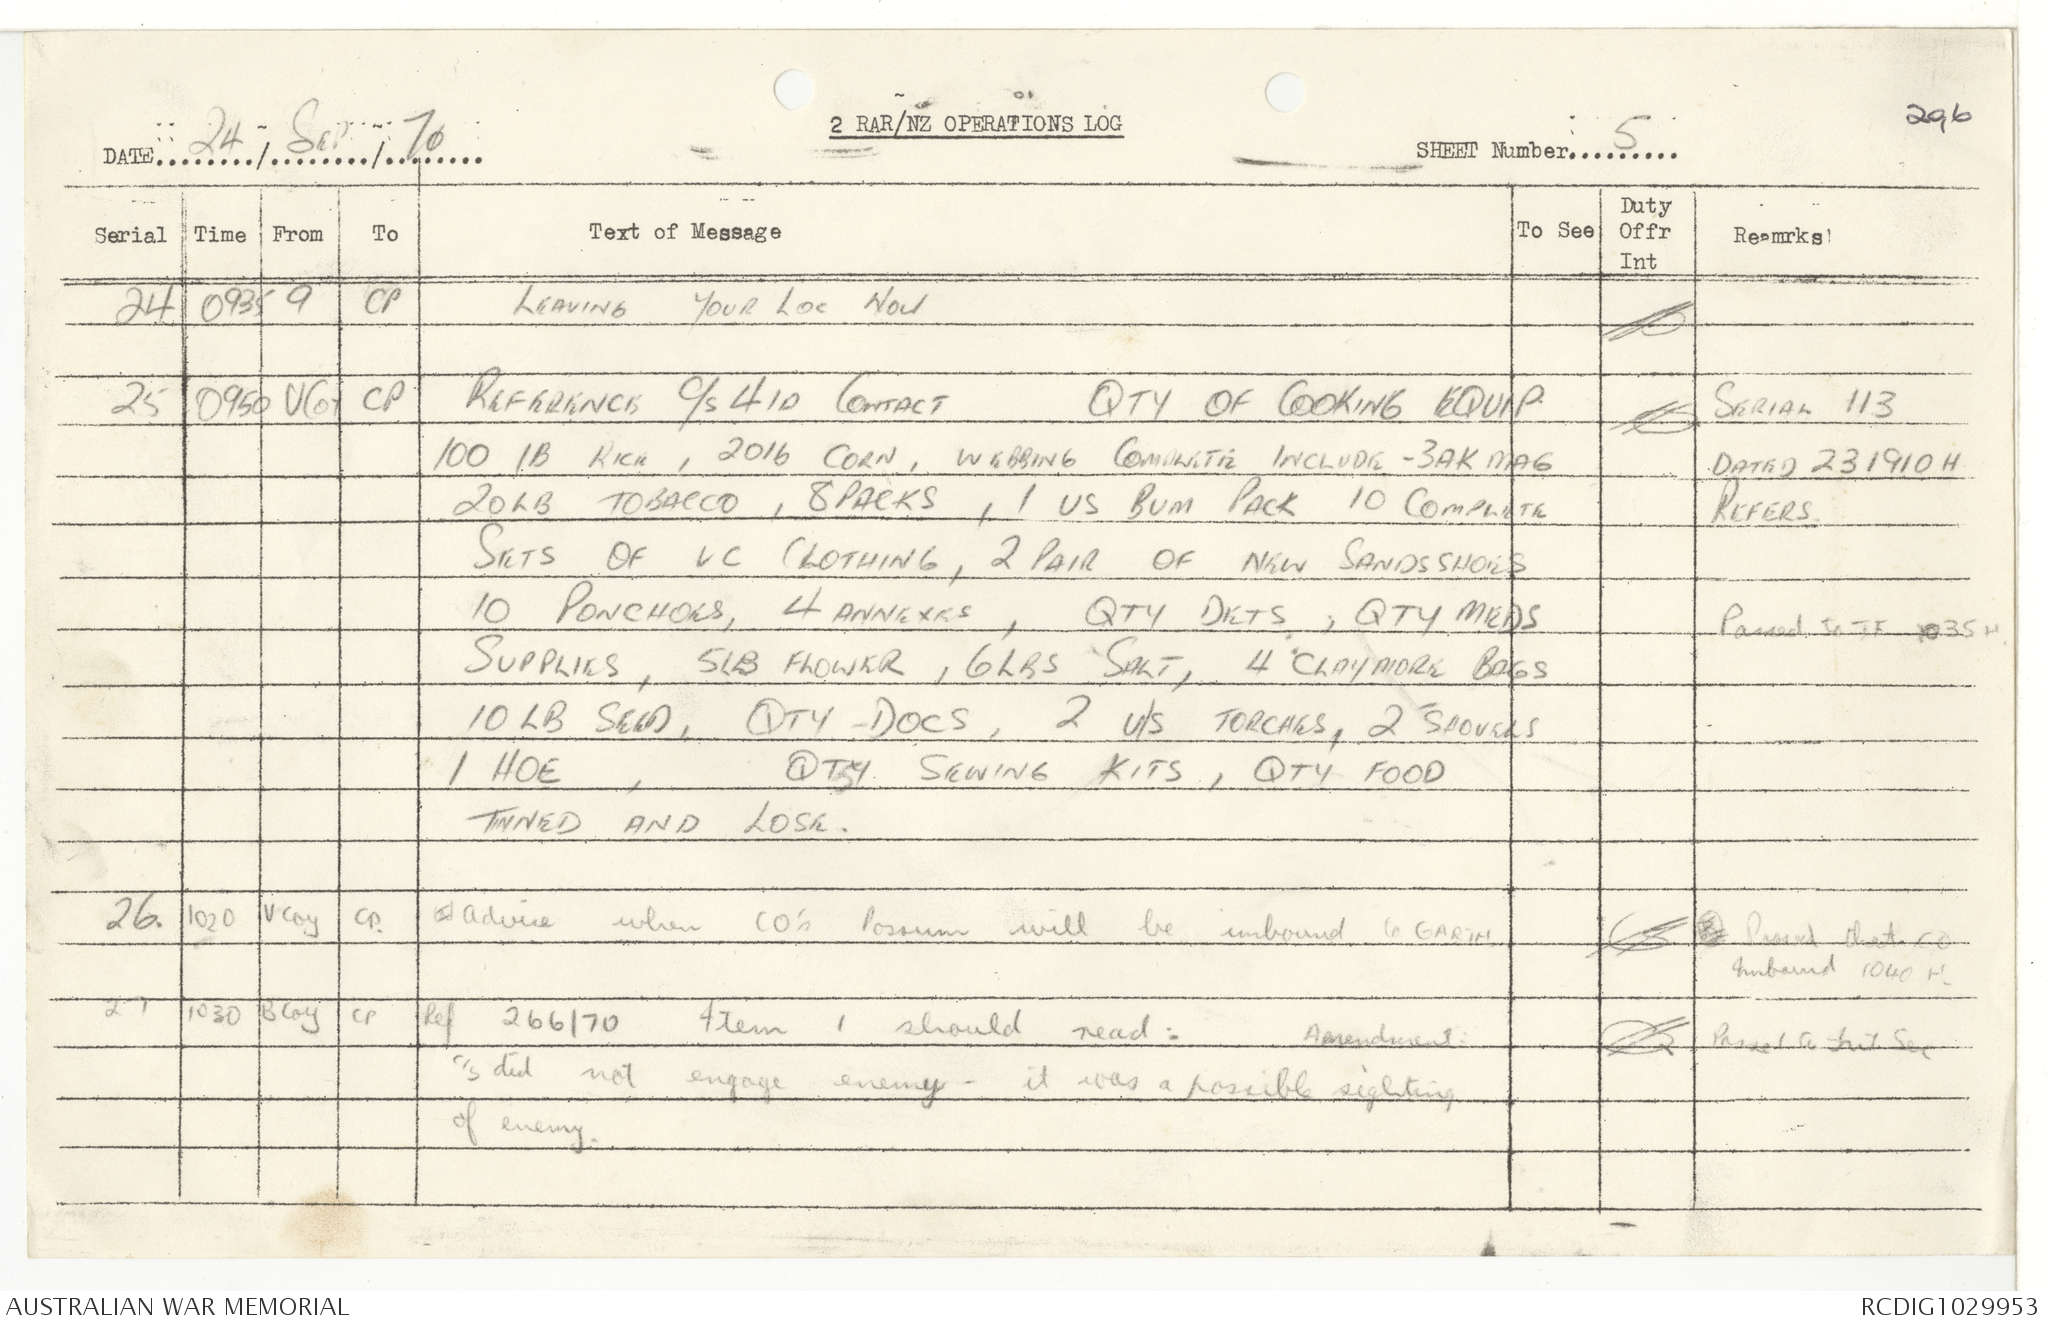 296
2 RAR/NZ OPERATIONS LOG
DATE 24 / SEP / 70
SHEET Number 5
Serial Time From To Text of Message To See Duty Offr Int Remrks
24 0935 9 CP LEAVING YOUR LOC NOW
25 0950 VCoy CP REFERENCE C/S 41D CONTACT QTY OF COOKING EQUIP. SERIAL 113
100 lB RICE, 20lb CORN, WEBBING COMPLETE INCLUDE - 3AK MAG DATED 231910H
20LB TOBACCO, 8 PACKS, 1 US BUM PACK 10 COMPLETE REFERS.
SETS OF VC CLOTHING, 2 PAIR OF NEW SANDSSHOES
10 PONCHOES, 4 ANNEXES, QTY DETS, QTY MEDS Passed to TF 1035H.
SUPPLIES, 5LB FLOWER, 6LBS SALT, 4 CLAYMORE BAGS
10 LB SEED, QTY DOCS, 2 U/S TORCHES, 2 SHOVELS
1 HOE, QTY SEWING KITS, QTY FOOD
TINNED AND LOSE.
26. 1020 V Coy CP. Advise when CO's Possum will be inbound to GARTH. Passed that CO
Inbound 1040 H.
27 1030 B Coy CP Ref 266/70 Item 1 should read: Amendment: Passed to Int Sec
C/S did not engage enemy - it was a possible sighting
of enemy.
AUSTRALIAN WAR MEMORIAL
RCDIG1029953